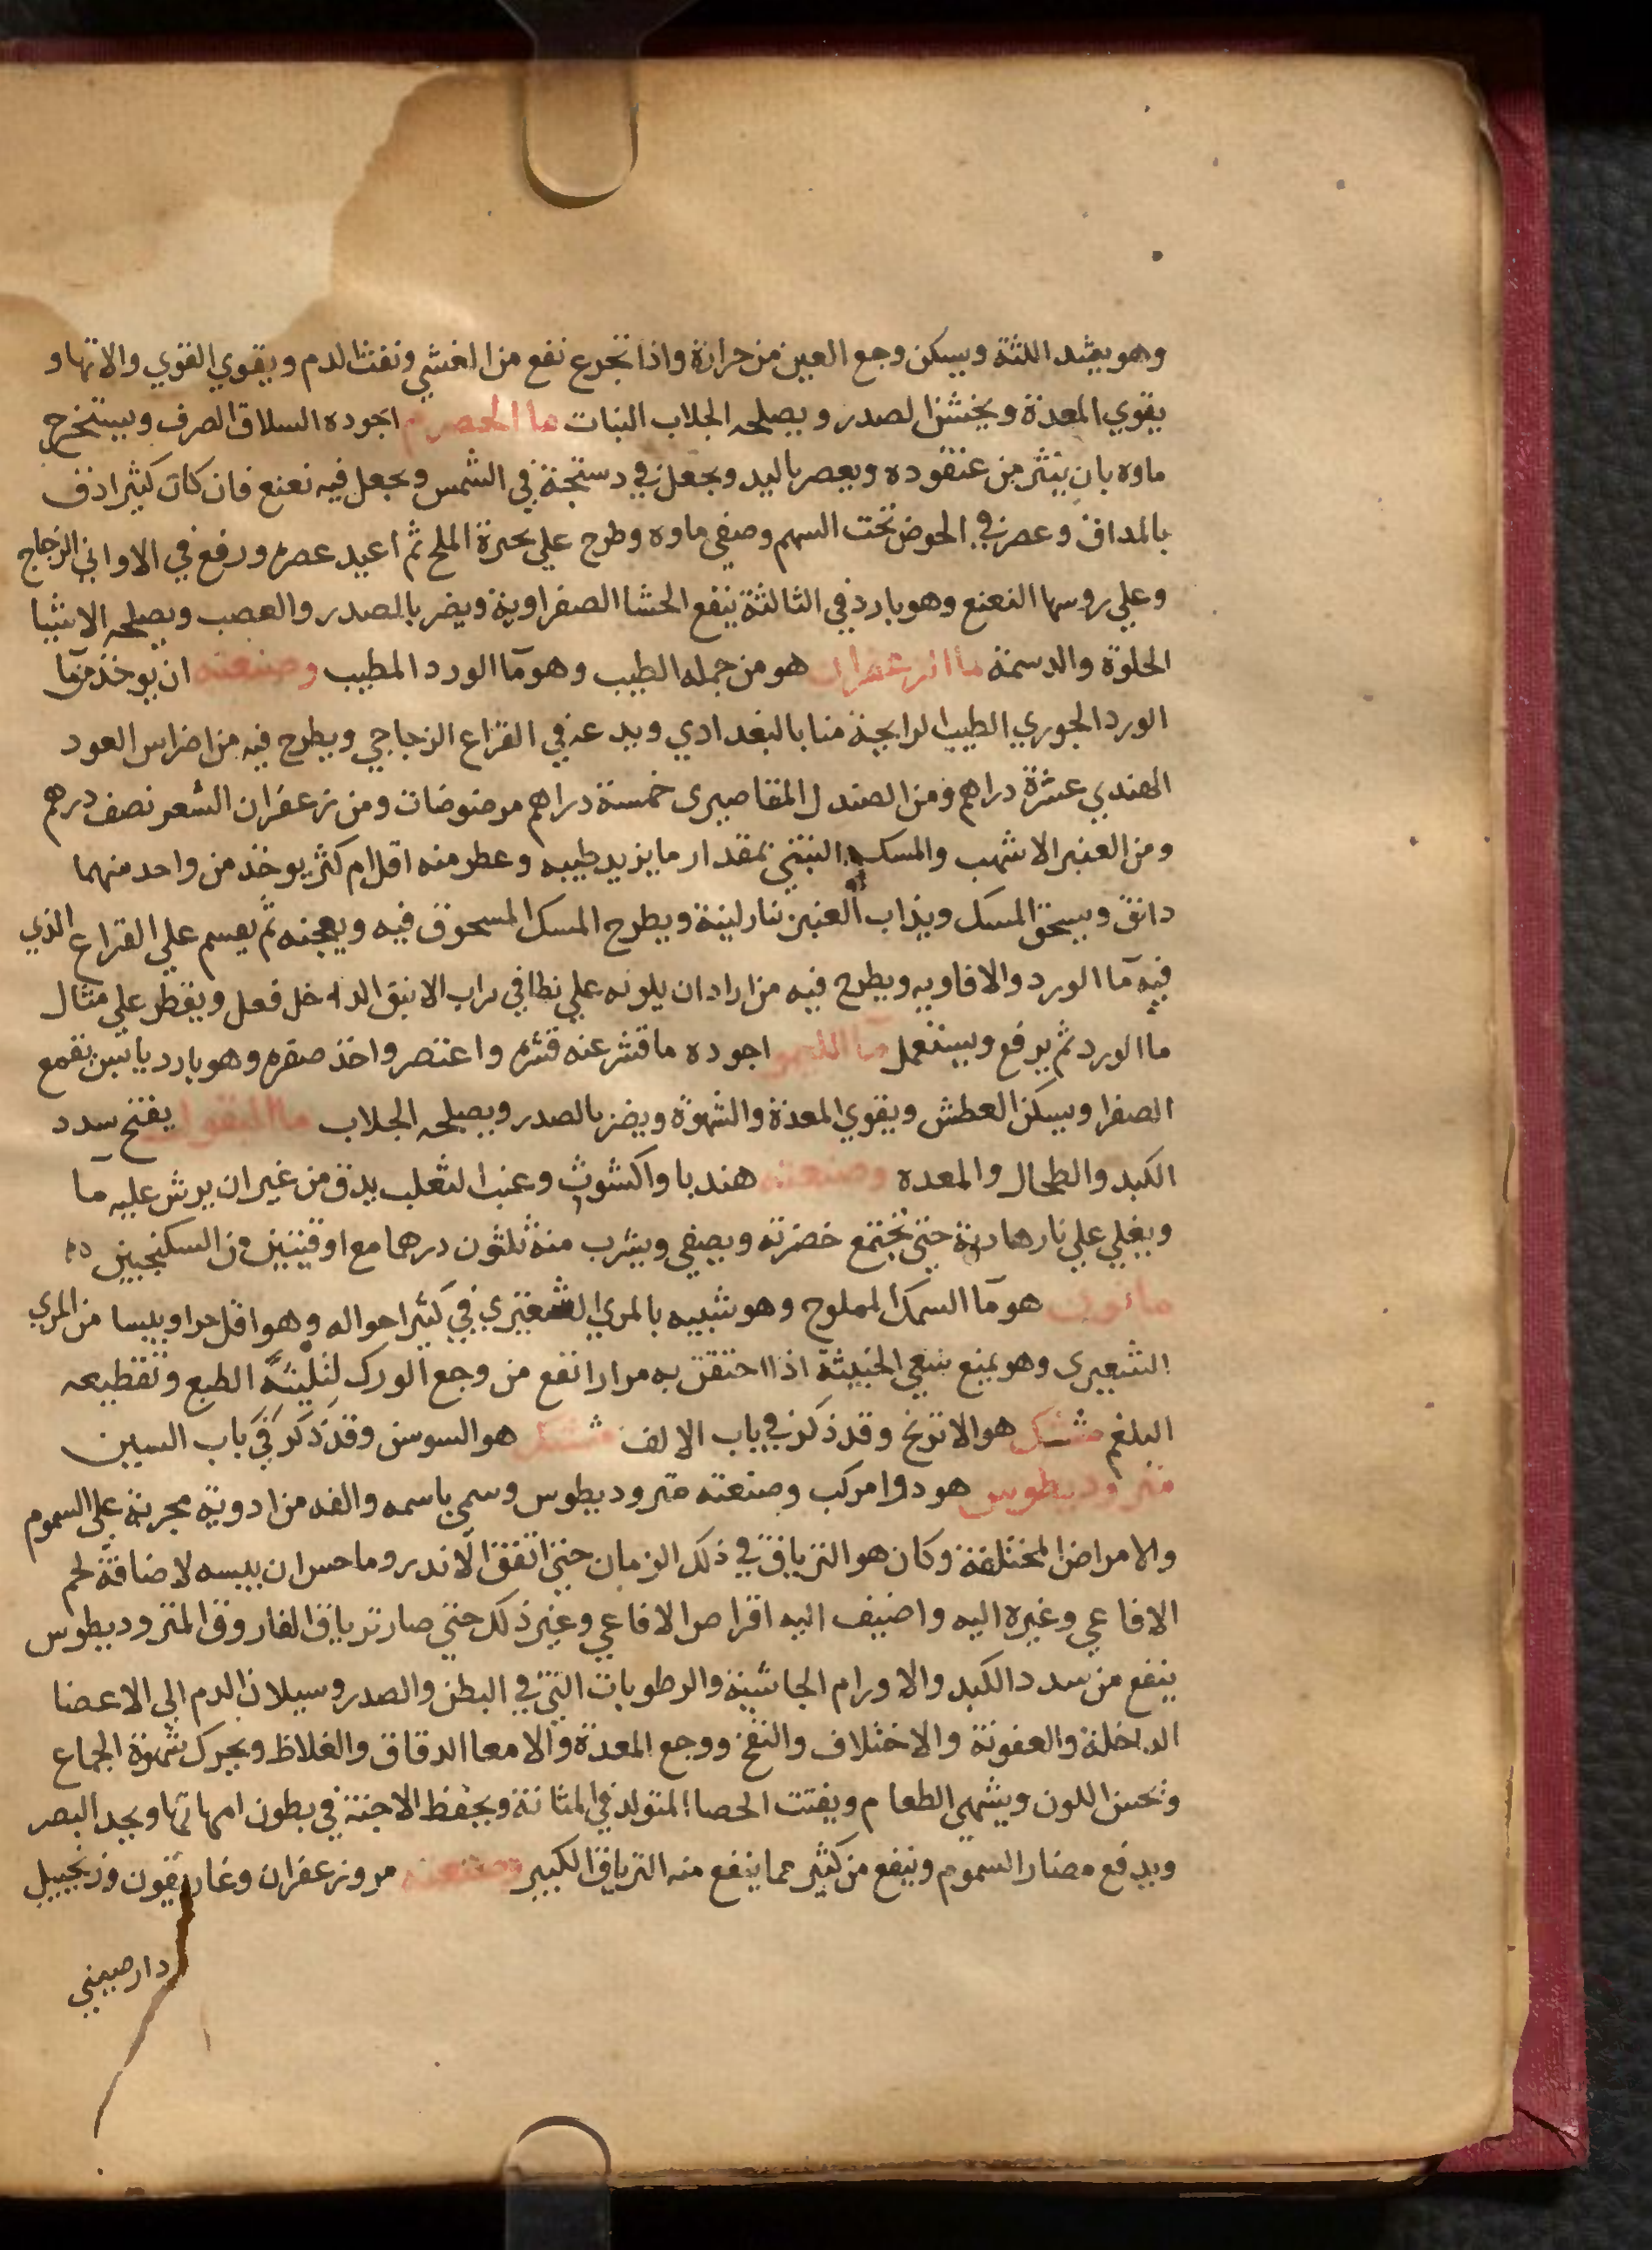 وهو يشد اللثة ويسكن وجع العين من حرارة واذا تجرع نفع من الغشي ونفث الدم ويقوي القوي والانهاو
يقوي المعدة ويخشن الصدر ويصلحه الجلاب النبات ما الحصرم اجوده السلاق الصرف ويستخرج
ماوه بان ينثر من عنقوده ويعصر باليد ويجعل في دستجة في الشمس ويجعل فيه نعنع فان كان كثيرا دق
بالمداق وعصر في الحوض تحت السهم وصفي ماوه وطرح علي بحيرة الملح ثم اعيد عصره ورفع في الاواني الزجاج
وعلي روسها النعنع وهو بارد في الثالثة ينفع الحشا الصفراوية ويضر بالصدر والعصب ويصلحه الاشيا
الحلوة والدسمة ما الزعفران هو من جمله الطيب وهو مآ الورد المطيب وصنعته ان يوخذ من مآ
الورد الجوري الطيب الرايحة منا بالبغدادي ويدعه في القراع الزجاجي ويطرح فيه من اضراس العود
الهندي عشرة دراهم ومن الصندل المقاصيري خمسة دراهم مرضوضات ومن زعفران الشعر نصف درهم
ومن العنبر الاشهب والمسك التبتي بمقدار ما يزيد طيبه وعطر منه اقل ام كثر يوخذ من واحد منهما
دانق ويسحق المسك ويذاب العنبر بنار لينة ويطرح المسك المسحوق فيه ويعجنه ثم يقسم علي القراع الذي
فيه مآ الورد والافاويه ويطرح فيه من اراد ان يلونه علي نطافي براب الانبق الداخل فعل ويقطر علي مثال
ما الورد ثم يرفع ويستعمل مآ الليمو اجوده ما قشر عنه قشره واعتصر واخذ صفره وهو بارد يابس يقمع
الصفرا ويسكن العطش ويقوي المعدة والشهوة ويضر بالصدر ويصلحه الجلاب ما البقول يفتح سدد
الكبد والطحال والمعده وصنعته هندبا واكشوث وعنب الثعلب يدق من غير ان يرش عليه مآ
ويغلي علي نار هادية حتي تجتمع خضرته ويصفي ويشرب منه ثلثون درهما مع اوقيتين من السكنجبين
ما نون هو مآ السمك المملوح وهو شبيه بالمري الشعيري في كثير احواله وهو اقل حرا ويبسا من المري
الشعيري وهو يمنع سعي الخبيثة اذا احتقن به مرارا نفع من وجع الورك لتليينه الطبع وتقطيعه
البلغم متك هو الاترنج وقد ذكر في باب الالف هو السوسن وقد ذكر في باب السين
مثروديطوس هو دوا مركب وصنعته مثروديطوس وسمي باسمه والفه من ادوية مجربة علي السموم
والامراض المختلفة وكان هو الترياق في ذلك الزمان حتي اتفق لاندروماحس ان يبسه لاضافة لحم
الافاعي وغيره اليه واضيف اليه اقراص الافاعي وغير ذلك حتي صار ترياق الفاروق المثروديطوس
ينفع من سدد الكبد والاورام الجاسية والرطوبات التي في البطن والصدر وسيلان الدم الي الاعضا
الداخلة والعفونة والاختلاف والنفخ ووجع المعدة والامعا الدقاق والغلاظ ويحرك شهوة الجماع
وتحسن اللون ويشهي الطعام ويفتت الحصا المتولد في المثانة ويحفظ الاجنة في بطون امهاتها ويحد البصر
ويدفع مضار السموم وينفع من كثير مما ينفع منه الترياق الكبير وصنعته مر وزعفران وغاريقون وزنجبيل
دارصيني